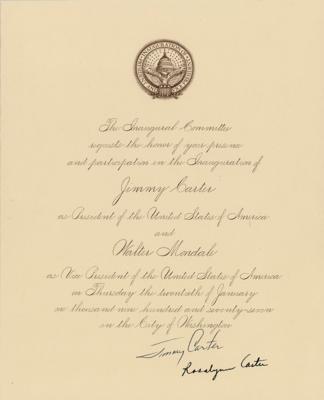 The Inaugural Committee
requests the honor of your presence
and participation in the Inauguration of
Jimmy Carter
as President of the United States of America
and
Walter Mondale
as Vice President of the United States of America
on Thursday the twentieth of January
one thousand nine hundred and seventy-seven
in the City of Washington
Jimmy Carter
Rosalynn Carter